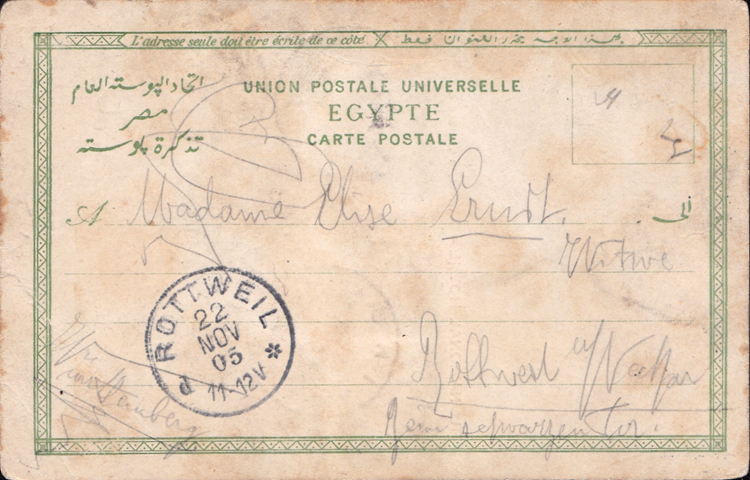 L'adresse seule doit être écrite de ce côté.
UNION POSTALE UNIVERSELLE
EGYPTE
CARTE POSTALE
اتحاد البوسته العام
مصر
تذكرة بوسته
A Madame Elise Ernst. الى
Witwe
Rottweil a/Neckar
beim schwarzen Tor.
ROTTWEIL
22
NOV
05
11-12V